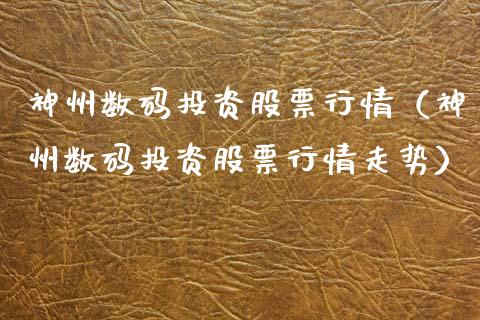 神州数码投资股票行情（神
州数码投资股票行情走势）